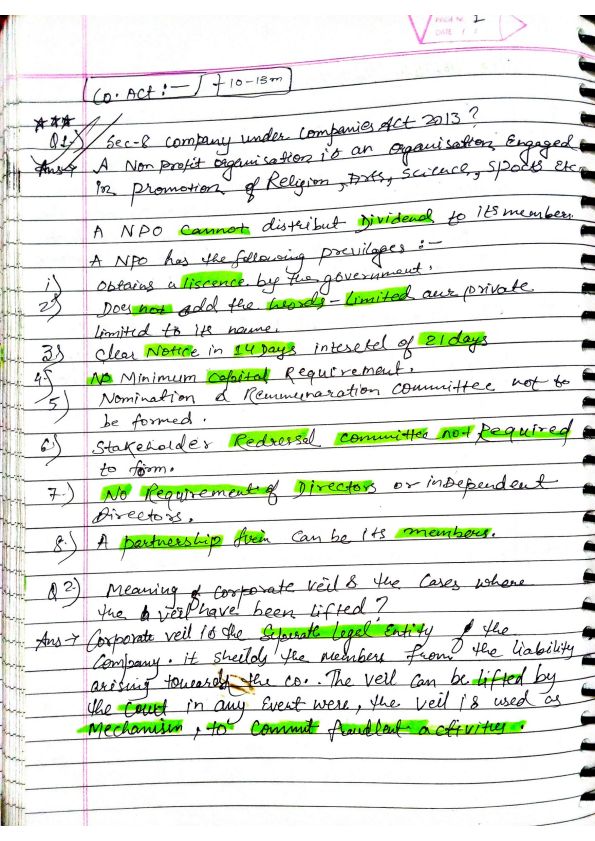 PAGE No. 1
DATE / /
Co. Act :- → 10-13m
*** 
Q1) Sec-8 company under Companies Act 2013?
Ans→ A Non profit organisation is an organisation Engaged
in promotion of Religion, Arts, Science, Sports Etc
A NPO cannot distribut Dividend to its members.
A NPO has the following previlages :-
1) Obtains a liscence by the government.
2) Does not add the words - Limited aur private
limited to its name.
3) Clear Notice in 14 Days intseted of 21 days
4) No Minimum capital Requirement.
5) Nomination & Remmunaration committee not to
be formed.
6) Stakeholder Redressel committee not Required
to form.
7.) No Requirement of Directors or independent
Directors.
8.) A partnership firm can be its members.
Q2) Meaning of corporate veil & the Cases where
the veil have been lifted?
Ans→ Corporate veil is the Seperate Legel Entity of the
Company. it sheilds the members from the liability
arising towards the co.. The veil can be lifted by
the Court in any Event were, the veil is used as
Mechanism, to commit fraudlent activities.